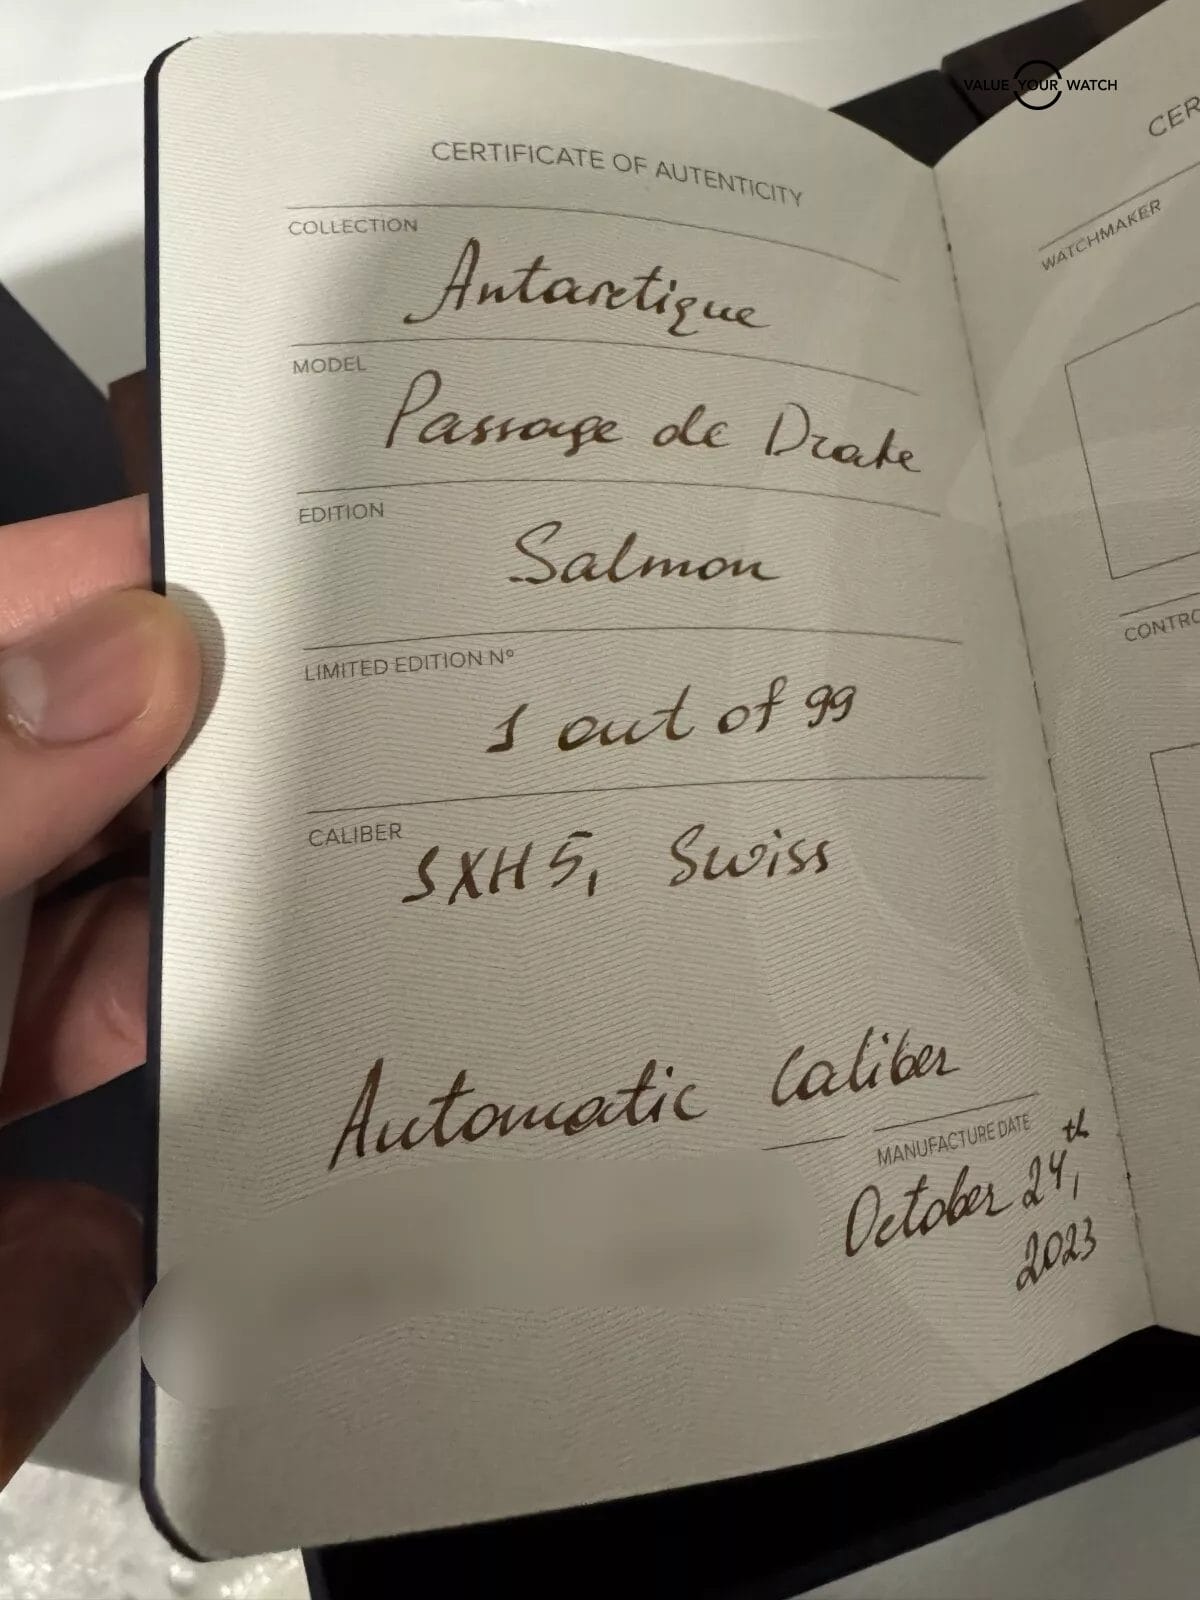 VALUE YOUR WATCH
CERTIFICATE OF AUTENTICITY
COLLECTION
Antarctique
MODEL
Passage de Drake
EDITION
Salmon
LIMITED EDITION Nº
1 out of 99
CALIBER
SXH5, Swiss
Automatic Caliber
MANUFACTURE DATE
October 24th,
2023
CER
WATCHMAKER
CONTRO